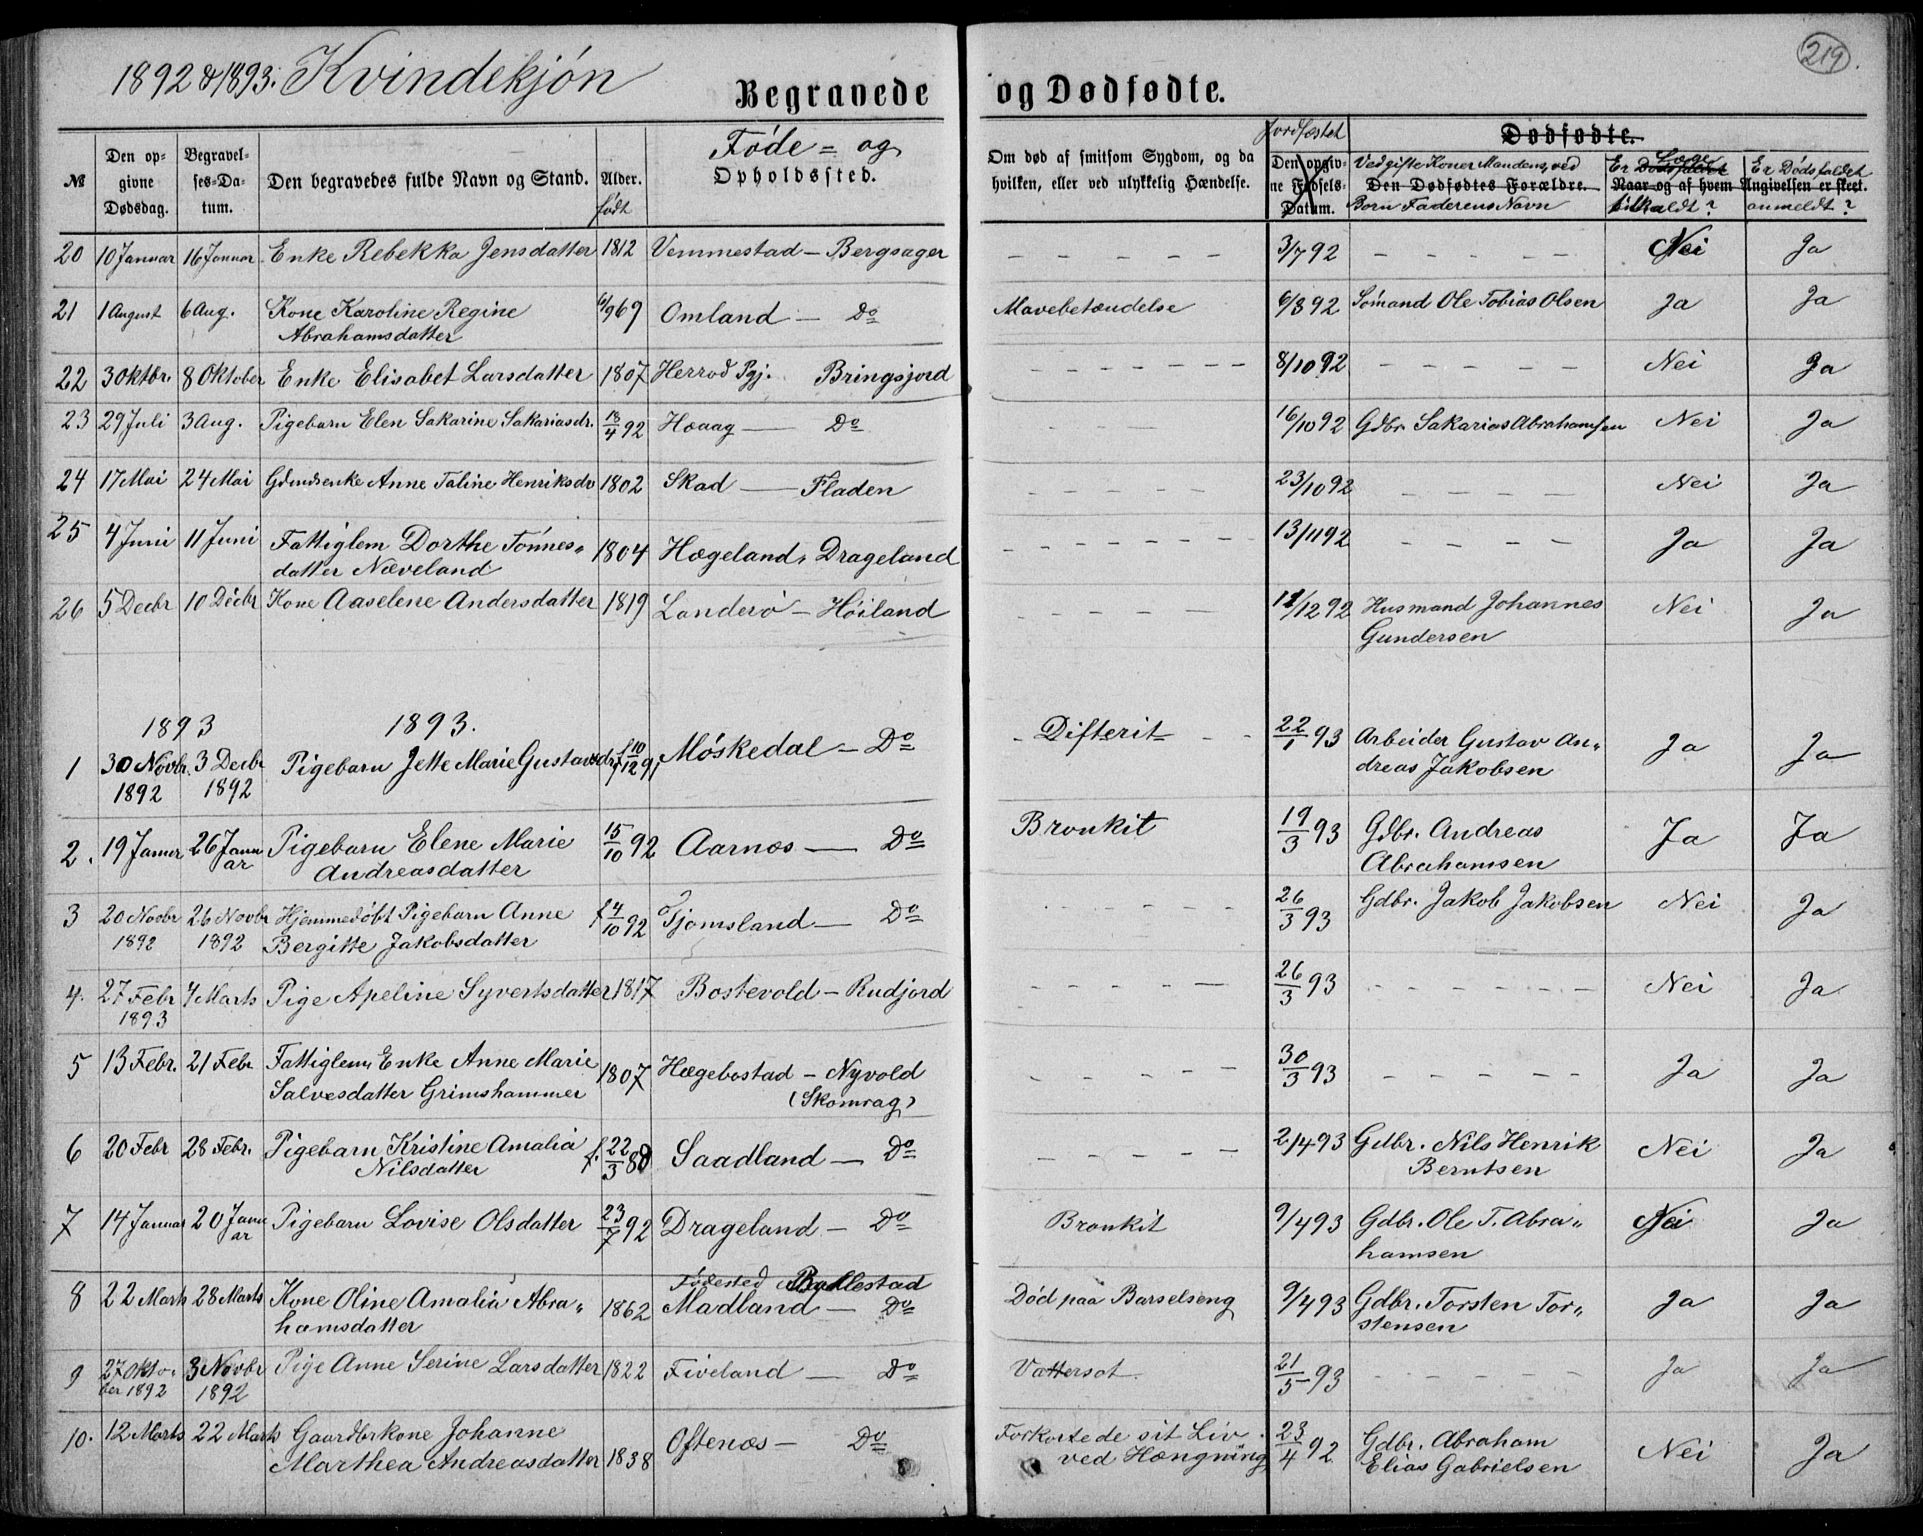 219
1892 & 1893. Kvindekjøn
Begravede og Dødfødte.
№
Den opgivne Dødsdag.
Begravelses-Datum.
Den begravedes fulde Navn og Stand.
Alder. født
Føde- og Opholdssted.
Om død af smitsom Sygdom, og da hvilken, eller ved ulykkelig Hændelse.
Jordfæstet
Den opgivne Fødsels-Datum.
Dødfødte.
Ved gifte Koner Mandens, ved
Den Dødfødtes Forældre.
Born Faderens Navn
Er Læge tilkaldt?
Naar og af hvem Angivelsen er skeet.
Er Dødsfaldet anmeldt?
20 10 Januar 16 Januar Enke Rebekka Jensdatter 1812 Vemmestad — Bergsager - - - - - 3/7 92 - - - - - Nei Ja
21 1 August 6 Aug. Kone Karoline Regine 6/9 69 Omland — Do Mavebetændelse 6/8 92 Sømand Ole Tobias Olsen Ja Ja
Abrahamsdatter
22 3 Oktbr. 8 Oktober Enke Elisabet Larsdatter 1807 Herrod Pgj. Bringsjord - - - - - - 8/10 92 - - - - - Nei Ja
23 29 Juli 3 Aug. Pigebarn Elen Sakarine Sakariasdr. 13/4 92 Hoaag — Do - - - 16/10 92 Gdbr. Sakarias Abrahamsen Nei Ja
24 17 Mai 24 Mai Gdmdsenke Anne Taline Henriksdr 1802 Skad — Fladen - - - - - 23/10 92 - - - - Nei Ja
25 4 Juni 11 Juni Fattiglem Dorthe Tønnes- 1804 Hægeland, Drageland - - - - - - - 13/11 92 - - - - Ja Ja
datter Næveland
26 5 Decbr 10 Decbr Kone Aaselene Andersdatter 1819 Landerö — Høiland - - - - 11/12 92 Husmand Johannes Nei Ja
Gundersen
1893 1893.
1 30 Novbr. 3 Decbr Pigebarn Jette Marie Gustavsdr. f 10/12 91 Møskedal — Do - Difterit - - 22/1 93 Arbeider Gustav An- Ja Ja
1892 1892 dreas Jakobsen
2. 19 Januar 26 Janu Pigebarn Elene Marie 15/10 92 Aarnæs — Do Bronkit 19/3 93 Gdbr. Andreas Ja Ja
ar Andreasdatter Abrahamsen
3 20 Novbr 26 Novbr Hjemmedøbt Pigebarn Anne f 4/10 92 Tjomsland — Do - - - - - 26/3 93 Gdbr. Jakob Jakobsen Nei Ja
1892 1892 Bergitte Jakobsdatter
4. 27 Febr 7 Marts Pige Apeline Syvertsdatter 1817 Bostevold — Rudjord - - - - - 26/3 93 - - - - - - Nei Ja
1893
5 13 Febr. 21 Febr Fattiglem, Enke Anne Marie 1807 Hægebostad — Nyvold - - - - - 30/3 93 - - - - - Ja Ja
Salvesdatter Grimshammer (Skomrag)
6 20 Febr 28 Febr. Pigebarn Kristine Amalia f. 22/3 88 Saadland — Do - - - - - 2/4 93 Gdbr. Nils Henrik Nei Ja
Nilsdatter Berntsen
7 14 Januar 20 Janu Pigebarn Lovise Olsdatter 23/7 92 Drageland — Do Bronkit 9/4 93 Gdbr. Ole T. Abra- Nei Ja
ar hamsen
Fødested Ballestad
8 22 Marts 28 Marts Kone Oline Amalia Abra- 1862 Madland — Do Død paa Barselseng 9/4 93 Gdbr. Torsten Tor- Ja Ja
hamsdatter stensen
9 27 Okto- 3 Novbr Pige Anne Serine Larsdatter 1822 Fiveland — Do Vattersot. 21/5 93 - - - - - Ja Ja
ber 1892 1892
10. 12 Marts 22 Marts Gaardbrkone Johanne 1838 Oftenæs — Do Forkortede sit Liv 23/4 92 Gdbr. Abraham Nei Ja
Marthea Andreasdatter ved Hængning Elias Gabrielsen